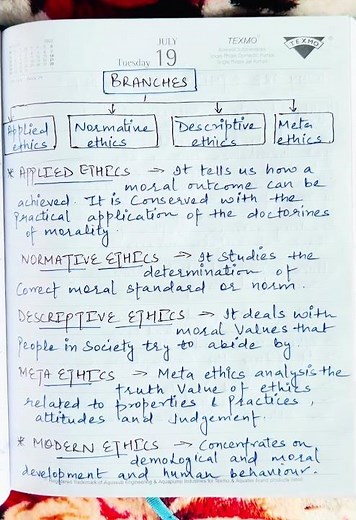 JULY
Tuesday 19
TEXMO
TEXMO
BRANCHES
Applied ethics
Normative ethics
Descriptive ethics
Meta ethics
* APPLIED ETHICS → It tells us how a
moral outcome can be
achieved. It is Conserved with the
practical application of the doctorines
of morality.
NORMATIVE ETHICS → It studies the
determination of
Correct moral standard or norm.
DESCRIPTIVE ETHICS → It deals with
moral Values that
People in Society try to abide by.
META ETHICS → Meta ethics analysis the
truth Value of ethics
related to properties & practices,
attitudes and Judgement.
* MODERN ETHICS → Concentrates on
demological and moral
development and human behaviour.
Registered Trademark of Aquasub Engineering & Aquapump Industries for Texmo & Aquatex brand products